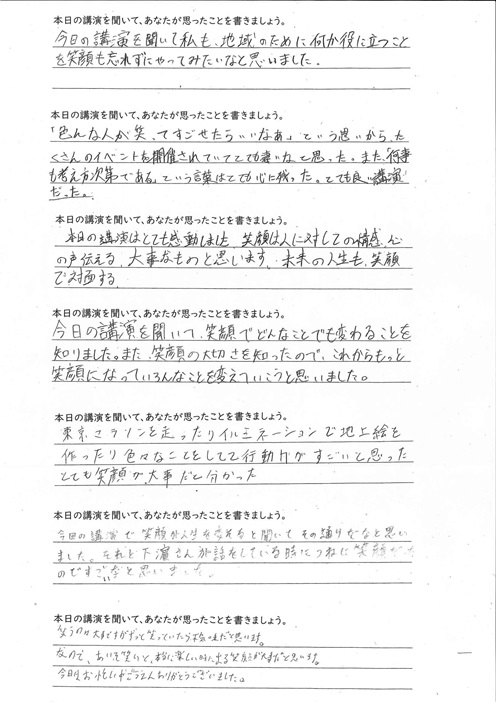 本日の講演を聞いて、あなたが思ったことを書きましょう。
今日の講演を聞いて私も、地域のために何か役に立つこと
を笑顔も忘れずにやってみたいなと思いました。
本日の講演を聞いて、あなたが思ったことを書きましょう。
「色んな人が笑ってすごせたらいいなぁ」という思いから、た
くさんのイベントを開催されていてとても凄いなと思った。また、「何事
も考え方次第である」という言葉はとても心に残った。とても良い講演
だった。
本日の講演を聞いて、あなたが思ったことを書きましょう。
本日の講演はとても感動しました。笑顔は人に対しての情感、心
の声伝える、大事なものと思います。未来の人生も、笑顔
で対面する
本日の講演を聞いて、あなたが思ったことを書きましょう。
今日の講演を聞いて、笑顔でどんなことでも変わることを
知りました。また、笑顔の大切さを知ったので、これからもっと
笑顔になっていろんなことを変えていこうと思いました。
本日の講演を聞いて、あなたが思ったことを書きましょう。
東京マラソンを走ったりイルミネーションで地上絵を
作ったり色々なことをしてて行動力がすごいと思った
とても笑顔が大事だと分かった
本日の講演を聞いて、あなたが思ったことを書きましょう。
今日の講演で笑顔が人生を変えると聞いてその通りだなと思い
ました。それと下濱さんが話をしている時につねに笑顔だった
のですごいなと思いました。
本日の講演を聞いて、あなたが思ったことを書きましょう。
笑うのは大事ですがずっと笑っていたら不気味だと思います。
なので、あいそ笑いと、本当に楽しい時に出る笑顔が大事だと思います。
今日はお忙しい中ごうえんありがとうございました。